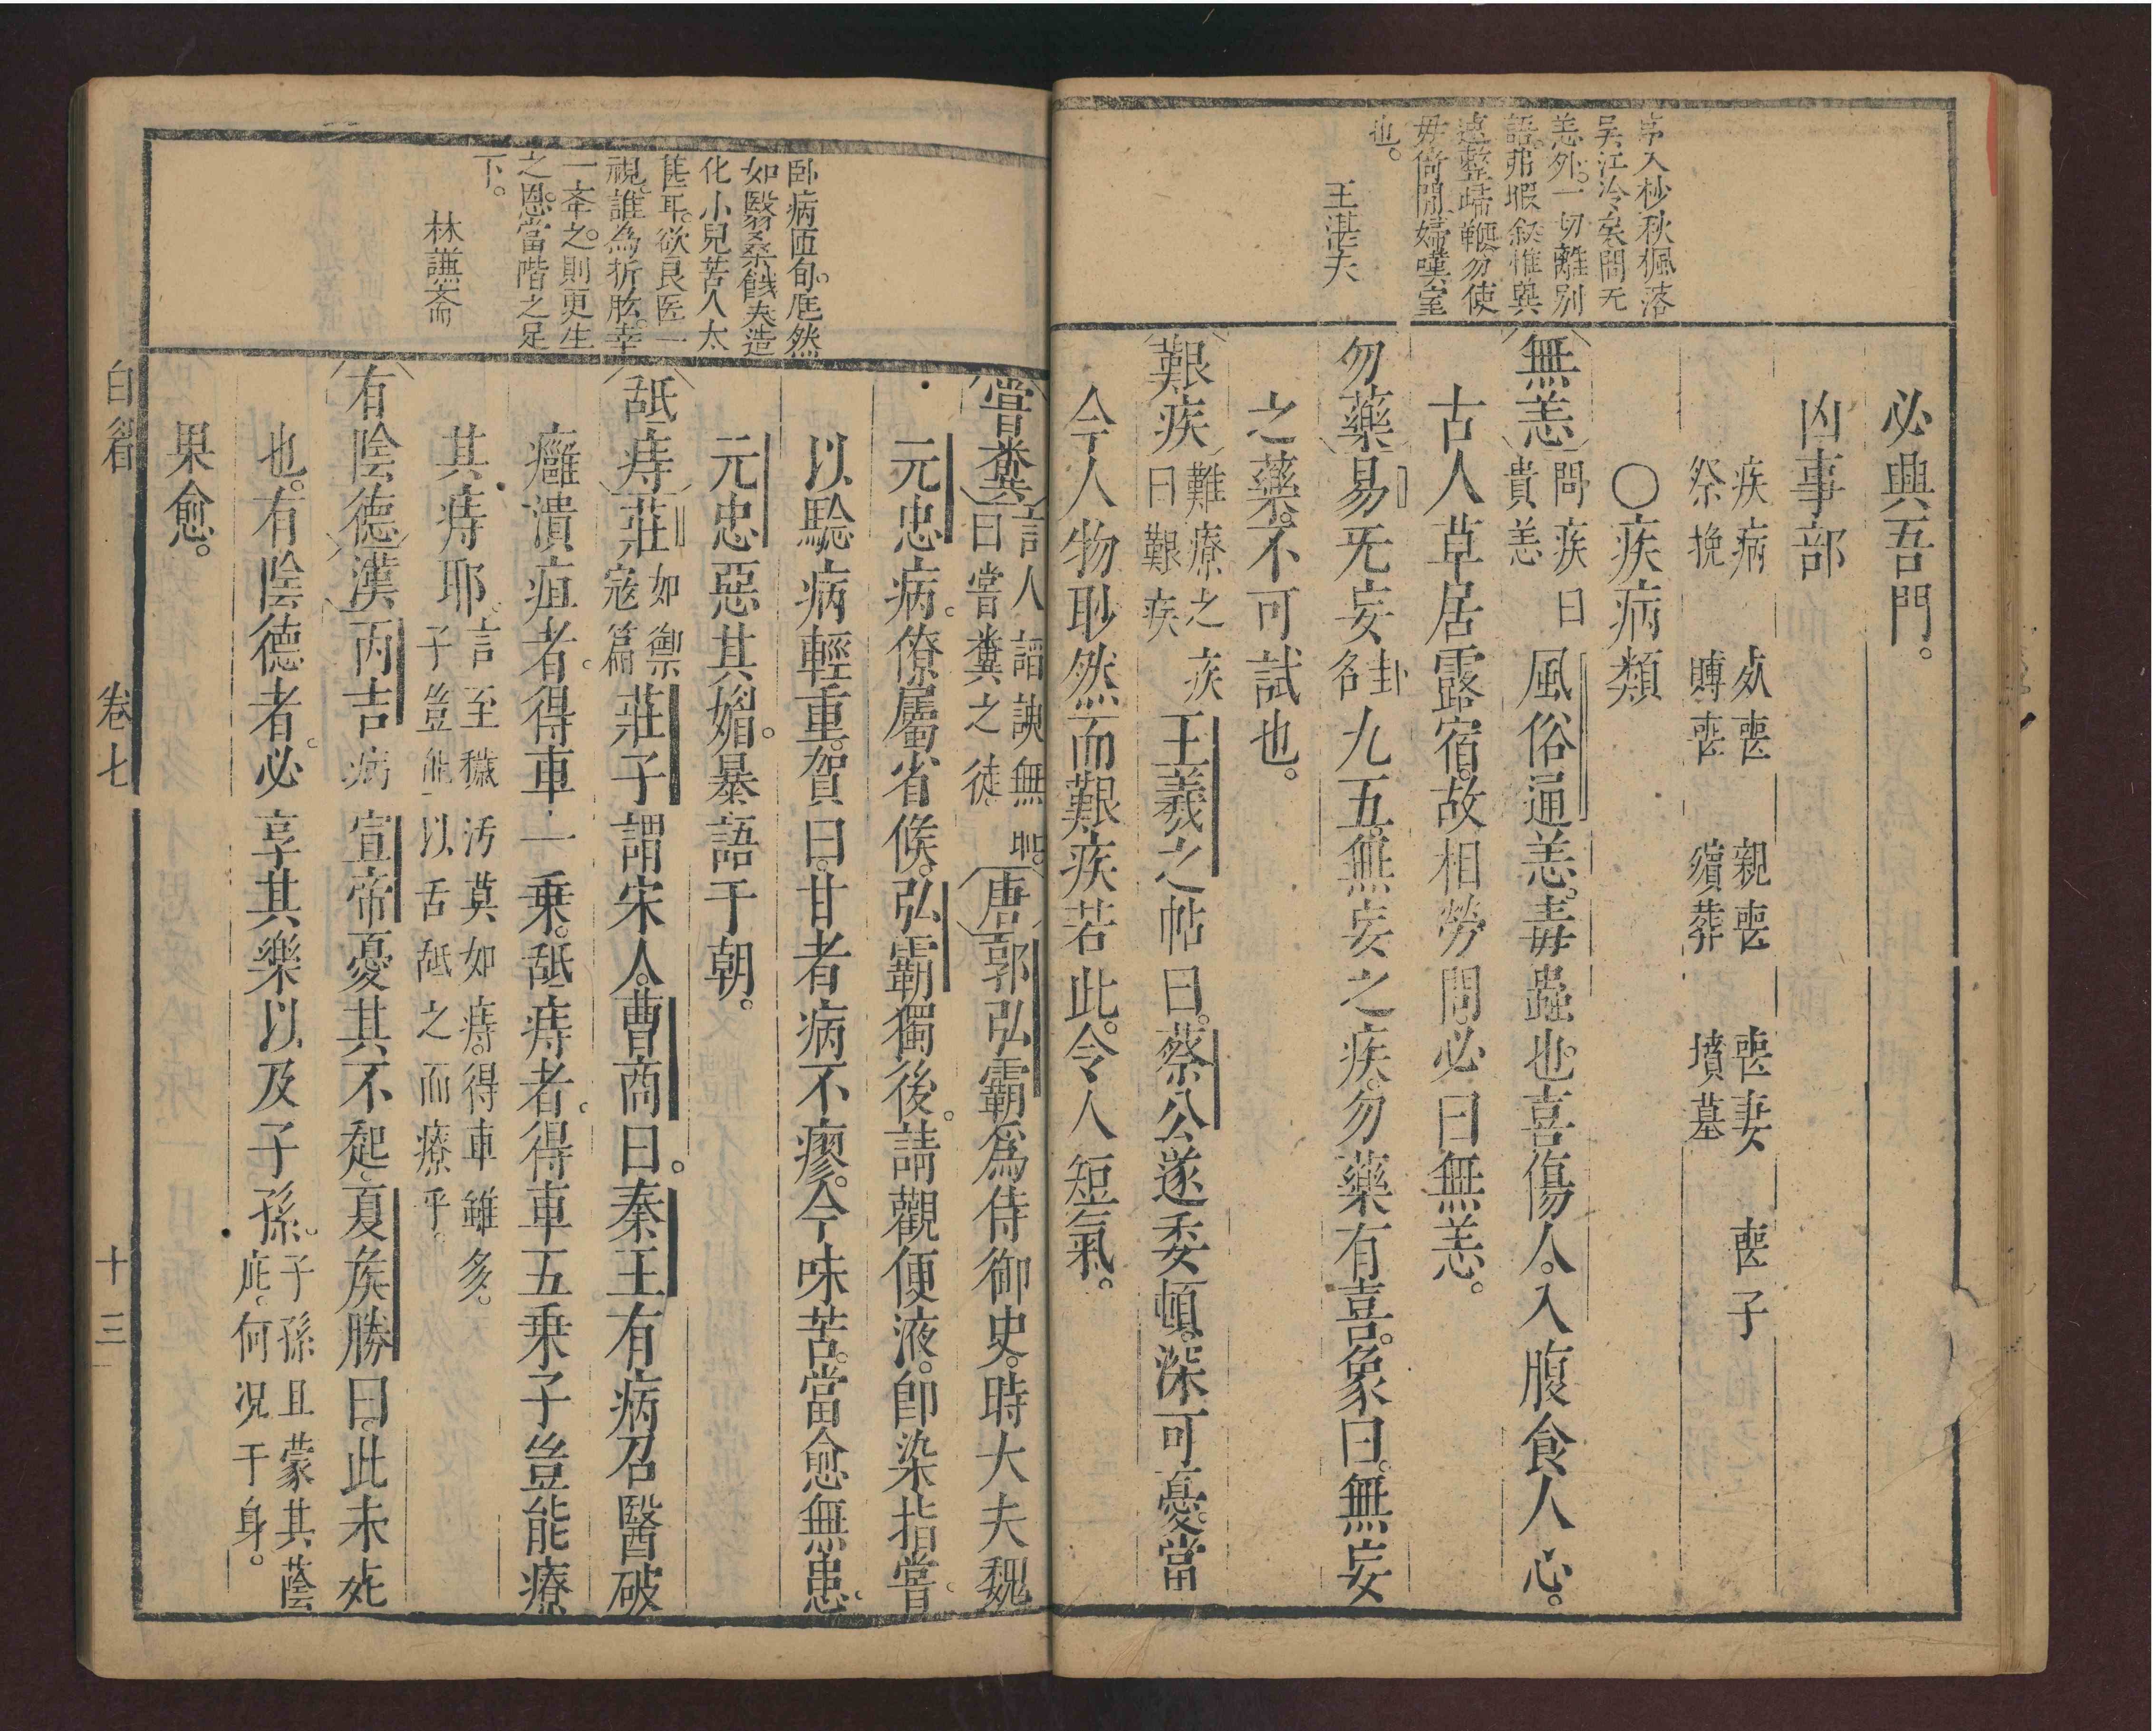 亭入杪秋楓落
吴江冷矣問无
恙外一切離别
語弗暇叙惟與
速整歸鞭勿使
毋倚閭婦嘆室
也。
王湛夫
必興吾門。
凶事部
疾病 夊喪 親喪 喪妻 喪子
祭挽 賻喪 殯葬 墳墓
○疾病類
無恙 問疾曰
貴恙 風俗通恙。毒蟲也喜傷人。入腹食人心。
古人草居露宿。故相勞問。必曰無恙。
勿藥 易无妄卦
名九五。無妄之疾。勿藥有喜。象曰。無妄
之藥。不可試也。
艱疾 難療之疾
曰艱疾 王羲之帖曰。蔡公遂委頓。深可憂。當
今人物眇然而艱疾若此。令人短氣。
卧病匝旬。尫然
如翳桑餓夫造
化小兒苦人太
甚耳。欲良医一
視。誰為折肱。幸
一牽之。則更生
之恩。當階之足
下。
林謙斎
嘗糞 言人諂諛無恥。
曰嘗糞之徒 唐郭弘霸爲侍御史。時大夫魏
元忠病。僚屬省候。弘霸獨後。請觀便液。卽染指嘗。
以騐病輕重。賀曰。甘者病不瘳。今味苦。當愈無患。
元忠惡其媚。暴語于朝。
舐痔 莊 如禦
寇篇 莊子謂宋人。曹商曰。秦王有病召醫破
癰潰疽者。得車一乗。舐痔者。得車五乗子豈能療
其痔耶。 言至穢汚莫如痔。得車雖多。
子豈能以舌舐之而療乎
有陰德 漢丙吉病 宣帝憂其不起。夏侯勝曰。此未死
也。有陰德者。必享其樂以及子孫。 子孫且蒙其蔭
庇。何况干身。
果愈。
白眉 卷七 十三